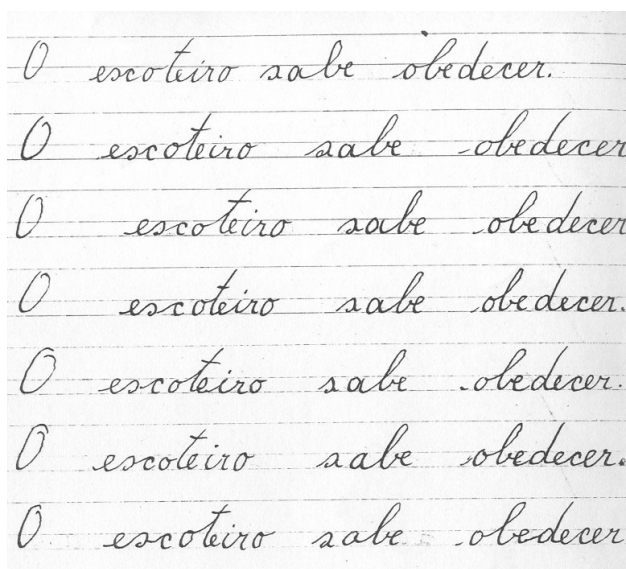 O escoteiro sabe obedecer.
O escoteiro sabe obedecer
O escoteiro sabe obedecer
O escoteiro sabe obedecer.
O escoteiro sabe obedecer.
O escoteiro sabe obedecer.
O escoteiro sabe obedecer